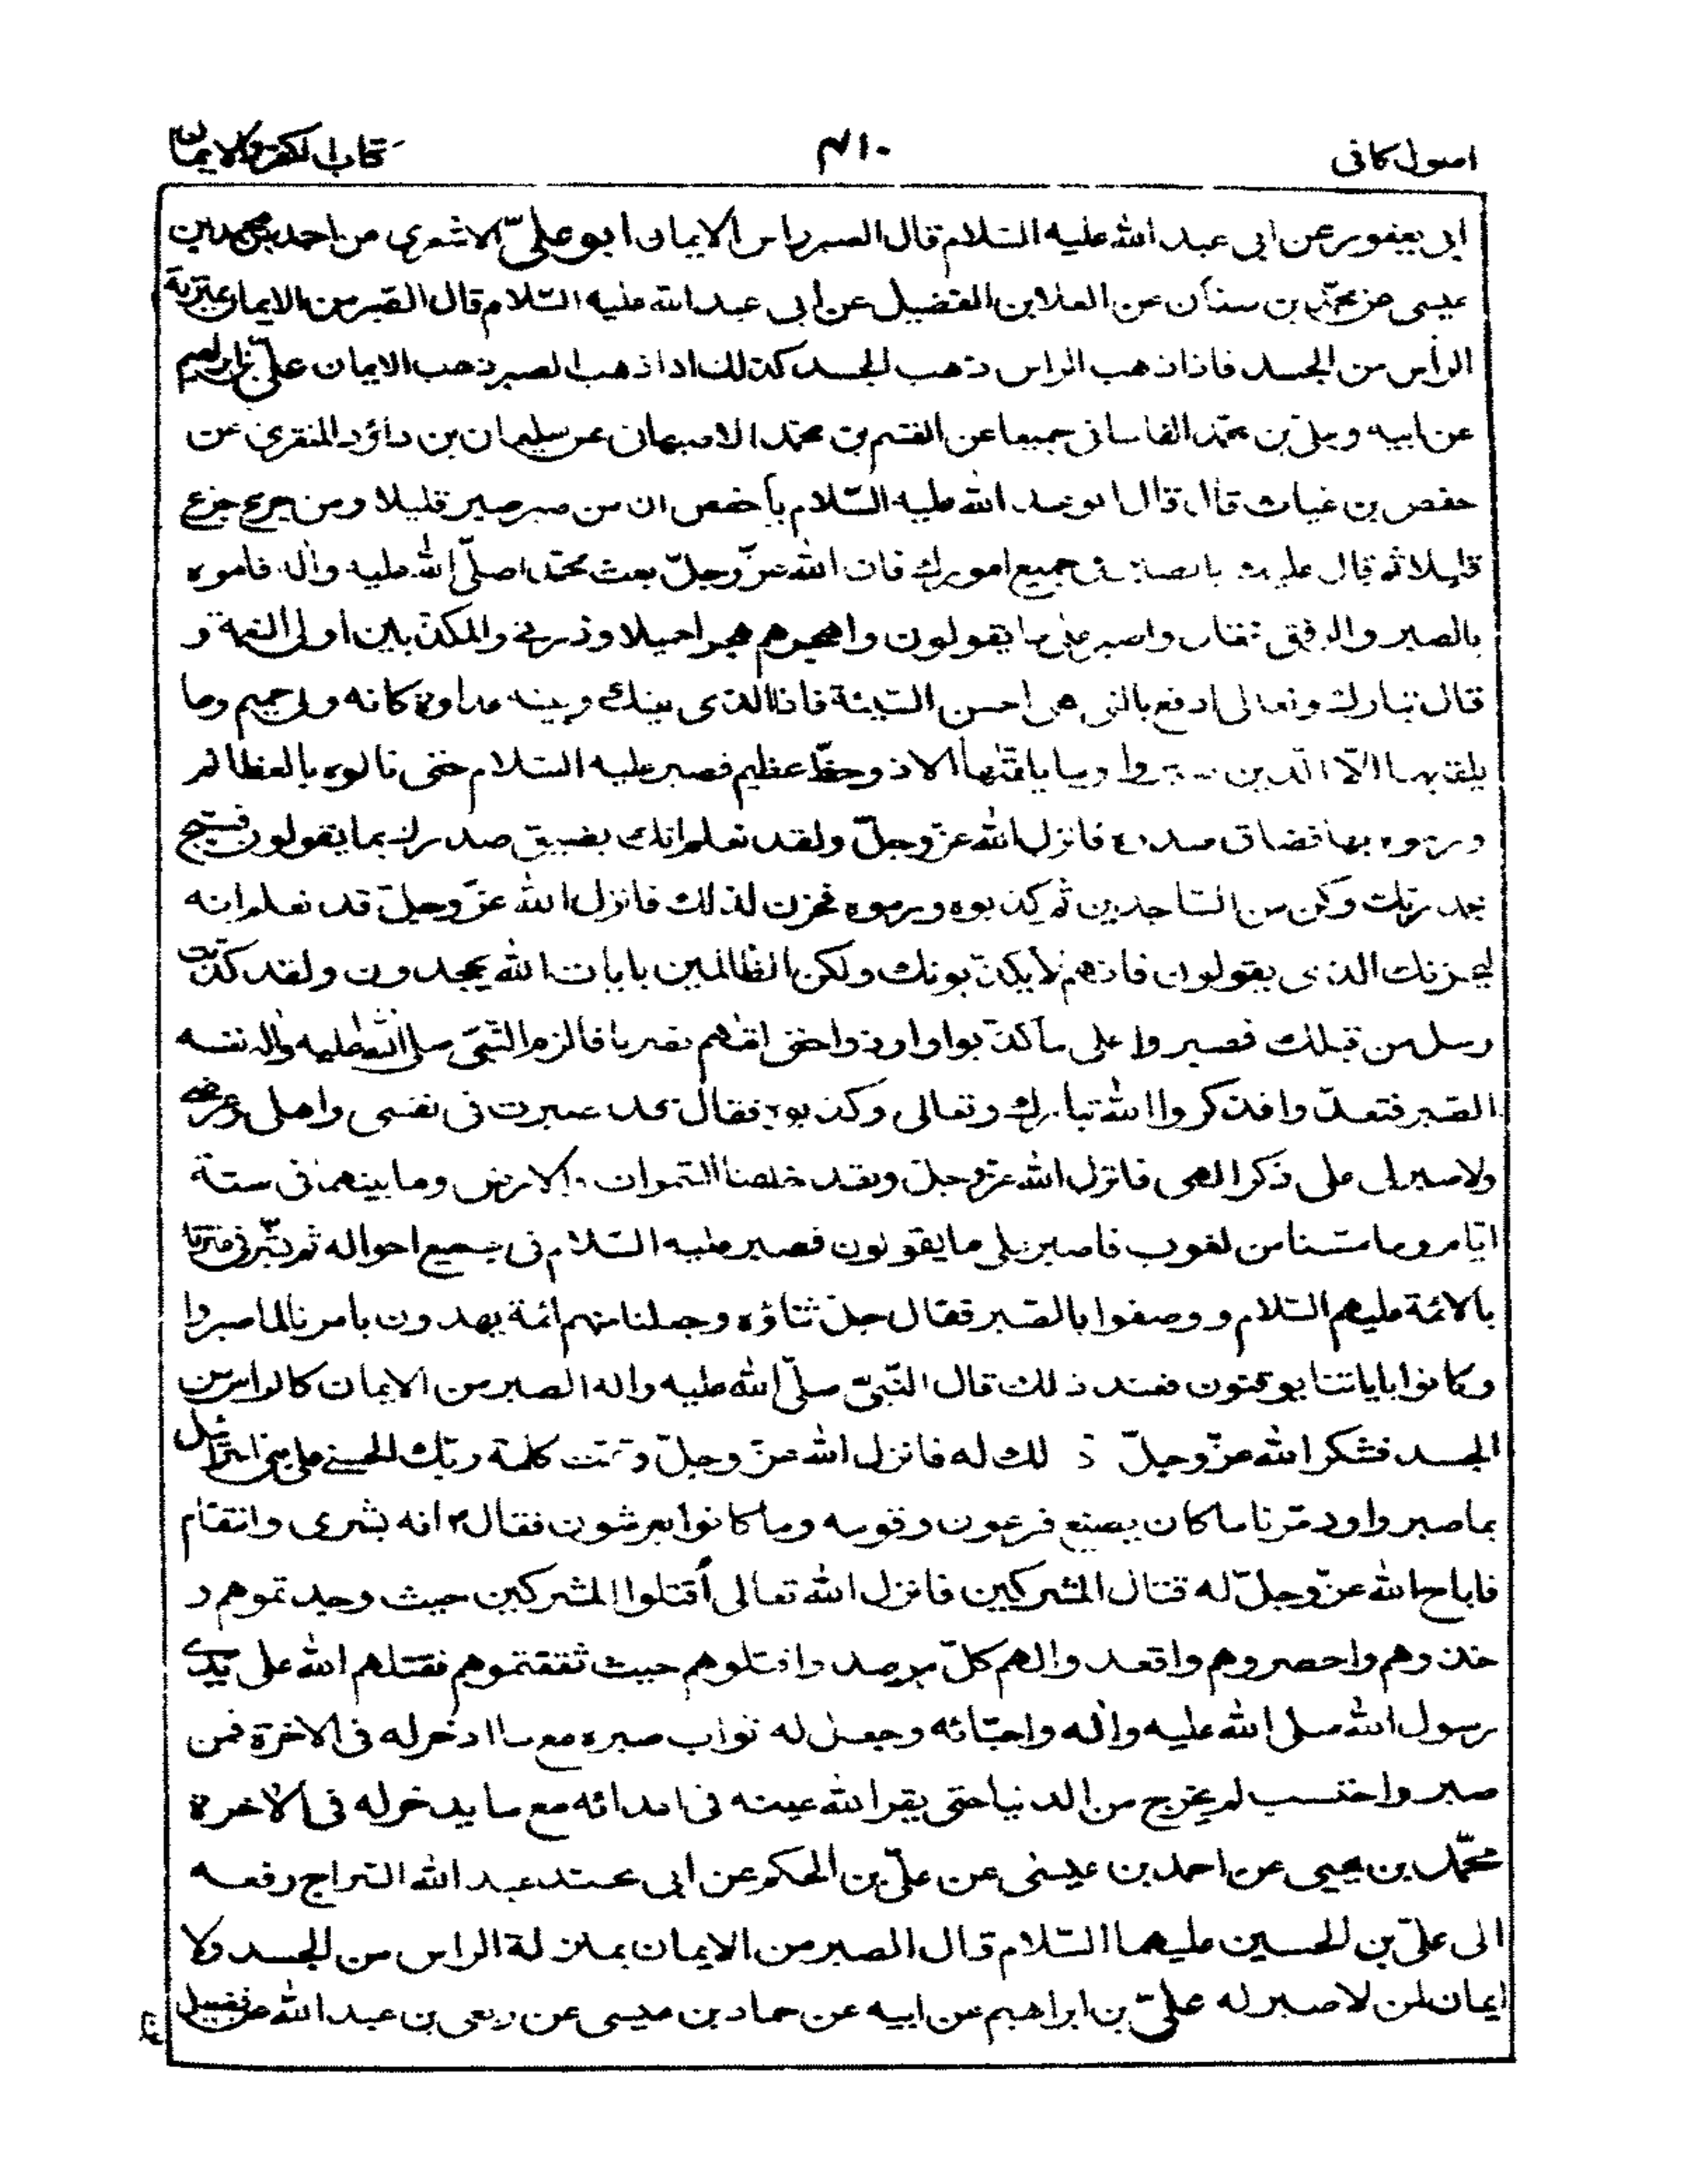 اصول كافى ۴۱۰ كتاب الكفر والايمان
ابى يعفور عن ابى عبد الله عليه السّلام قال الصبر راس الايمان ابو علىّ الاشعرى من احمد بن محمد بن
عيسى عن محمّد بن سنان عن العلا بن الفضيل عن ابى عبد الله عليه السّلام قال الصّبر من الايمان بمنزلة
الرأس من الجسد فاذا ذهب الراس ذهب الجسد كذلك اذا ذهب الصبر ذهب الايمان علىّ بن ابراهيم
عن ابيه وعلىّ بن محمّد القاسانى جميعا عن القسم بن محمّد الاصبهانى عن سليمان بن داؤد المنقرى عن
حفص بن غياث قال قال ابو عبد الله عليه السّلام يا حفص ان من صبر صبر قليلا ومن جزع جزع
قليلا ثم قال عليك بالصبر فى جميع امورك فان الله عزّ وجلّ بعث محمّدا صلّى الله عليه واٰله فامره
بالصبر والرفق فقال واصبر على ما يقولون واهجرهم هجرا جميلا وذرنى والمكذّبين اولى النعمة و
قال تبارك وتعالى ادفع بالتى هى احسن السّيئة فاذا الذى بينك وبينه عداوة كانه ولى حميم وما
يلقيها الّا الّذين صبروا وما يلقّيها الا ذو حظّ عظيم فصبر عليه السّلام حتى نالوه بالعظائم
ورموه بها فضاق صدره فانزل الله عزّ وجلّ ولقد نعلم انك يضيق صدرك بما يقولون فسبّح
بحمد ربّك وكن من السّاجدين ثم كذبوه ورموه فحزن لذلك فانزل الله عزّ وجلّ قد نعلم انه
ليحزنك الذى يقولون فانهم لا يكذّبونك ولكن الظالمين بايات الله يجحدون ولقد كذّبت
رسل من قبلك فصبروا على ما كذّبوا واوذوا حتى اتٰهم نصرنا فالزم النّبىّ صلى الله عليه واٰله نفسه
الصّبر فتعدّوا فذكروا الله تبارك وتعالى وكذبوه فقال قد صبرت فى نفسى واهلى وعرضى
ولا صبر لى على ذكر الهى فانزل الله عزّ وجلّ ولقد خلقنا السّموات والارض وما بينهما فى ستة
ايّام وما مسّنا من لغوب فاصبر على ما يقولون فصبر عليه السّلام فى جميع احواله ثم بشّر فى عترته
بالائمة عليهم السّلام ووصفوا بالصّبر فقال جلّ ثناؤه وجعلنا منهم ائمة يهدون بامرنا لما صبروا
وكانوا باياتنا يوقنون فعند ذلك قال النّبىّ صلّى الله عليه واٰله الصبر من الايمان كالراس من
الجسد فشكر الله عزّ وجلّ ذ لك له فانزل الله عزّ وجلّ وتمّت كلمة ربّك الحسنى على بنى اسرائيل
بما صبروا ودمّرنا ما كان يصنع فرعون وقومه وما كانوا يعرشون فقال ع انه بشرى وانتقام
فاباح الله عزّ وجلّ له قتال المشركين فانزل الله تعالى اُقتلوا المشركين حيث وجدتموهم و
خذوهم واحصروهم واقعدوا لهم كلّ مرصد واقتلوهم حيث ثقفتموهم فقتلهم الله على يدى
رسول الله صلى الله عليه واٰله واحبّائه وجعل له ثواب صبره مع ما ادخر له فى الاخرة فمن
صبر واحتسب لم يخرج من الدنيا حتى يقر الله عينه فى اعدائه مع ما يدخر له فى الاخرة
محمّد بن يحيى عن احمد بن عيسى عن علىّ بن الحكم عن ابى محمّد عبد الله السّراج رفعه
الى علىّ بن الحسين عليهما السّلام قال الصبر من الايمان بمنزلة الراس من الجسد ولا
ايمان لمن لا صبر له علىّ بن ابراهيم عن ابيه عن حماد بن عيسى عن ربعى بن عبد الله عن فضيل